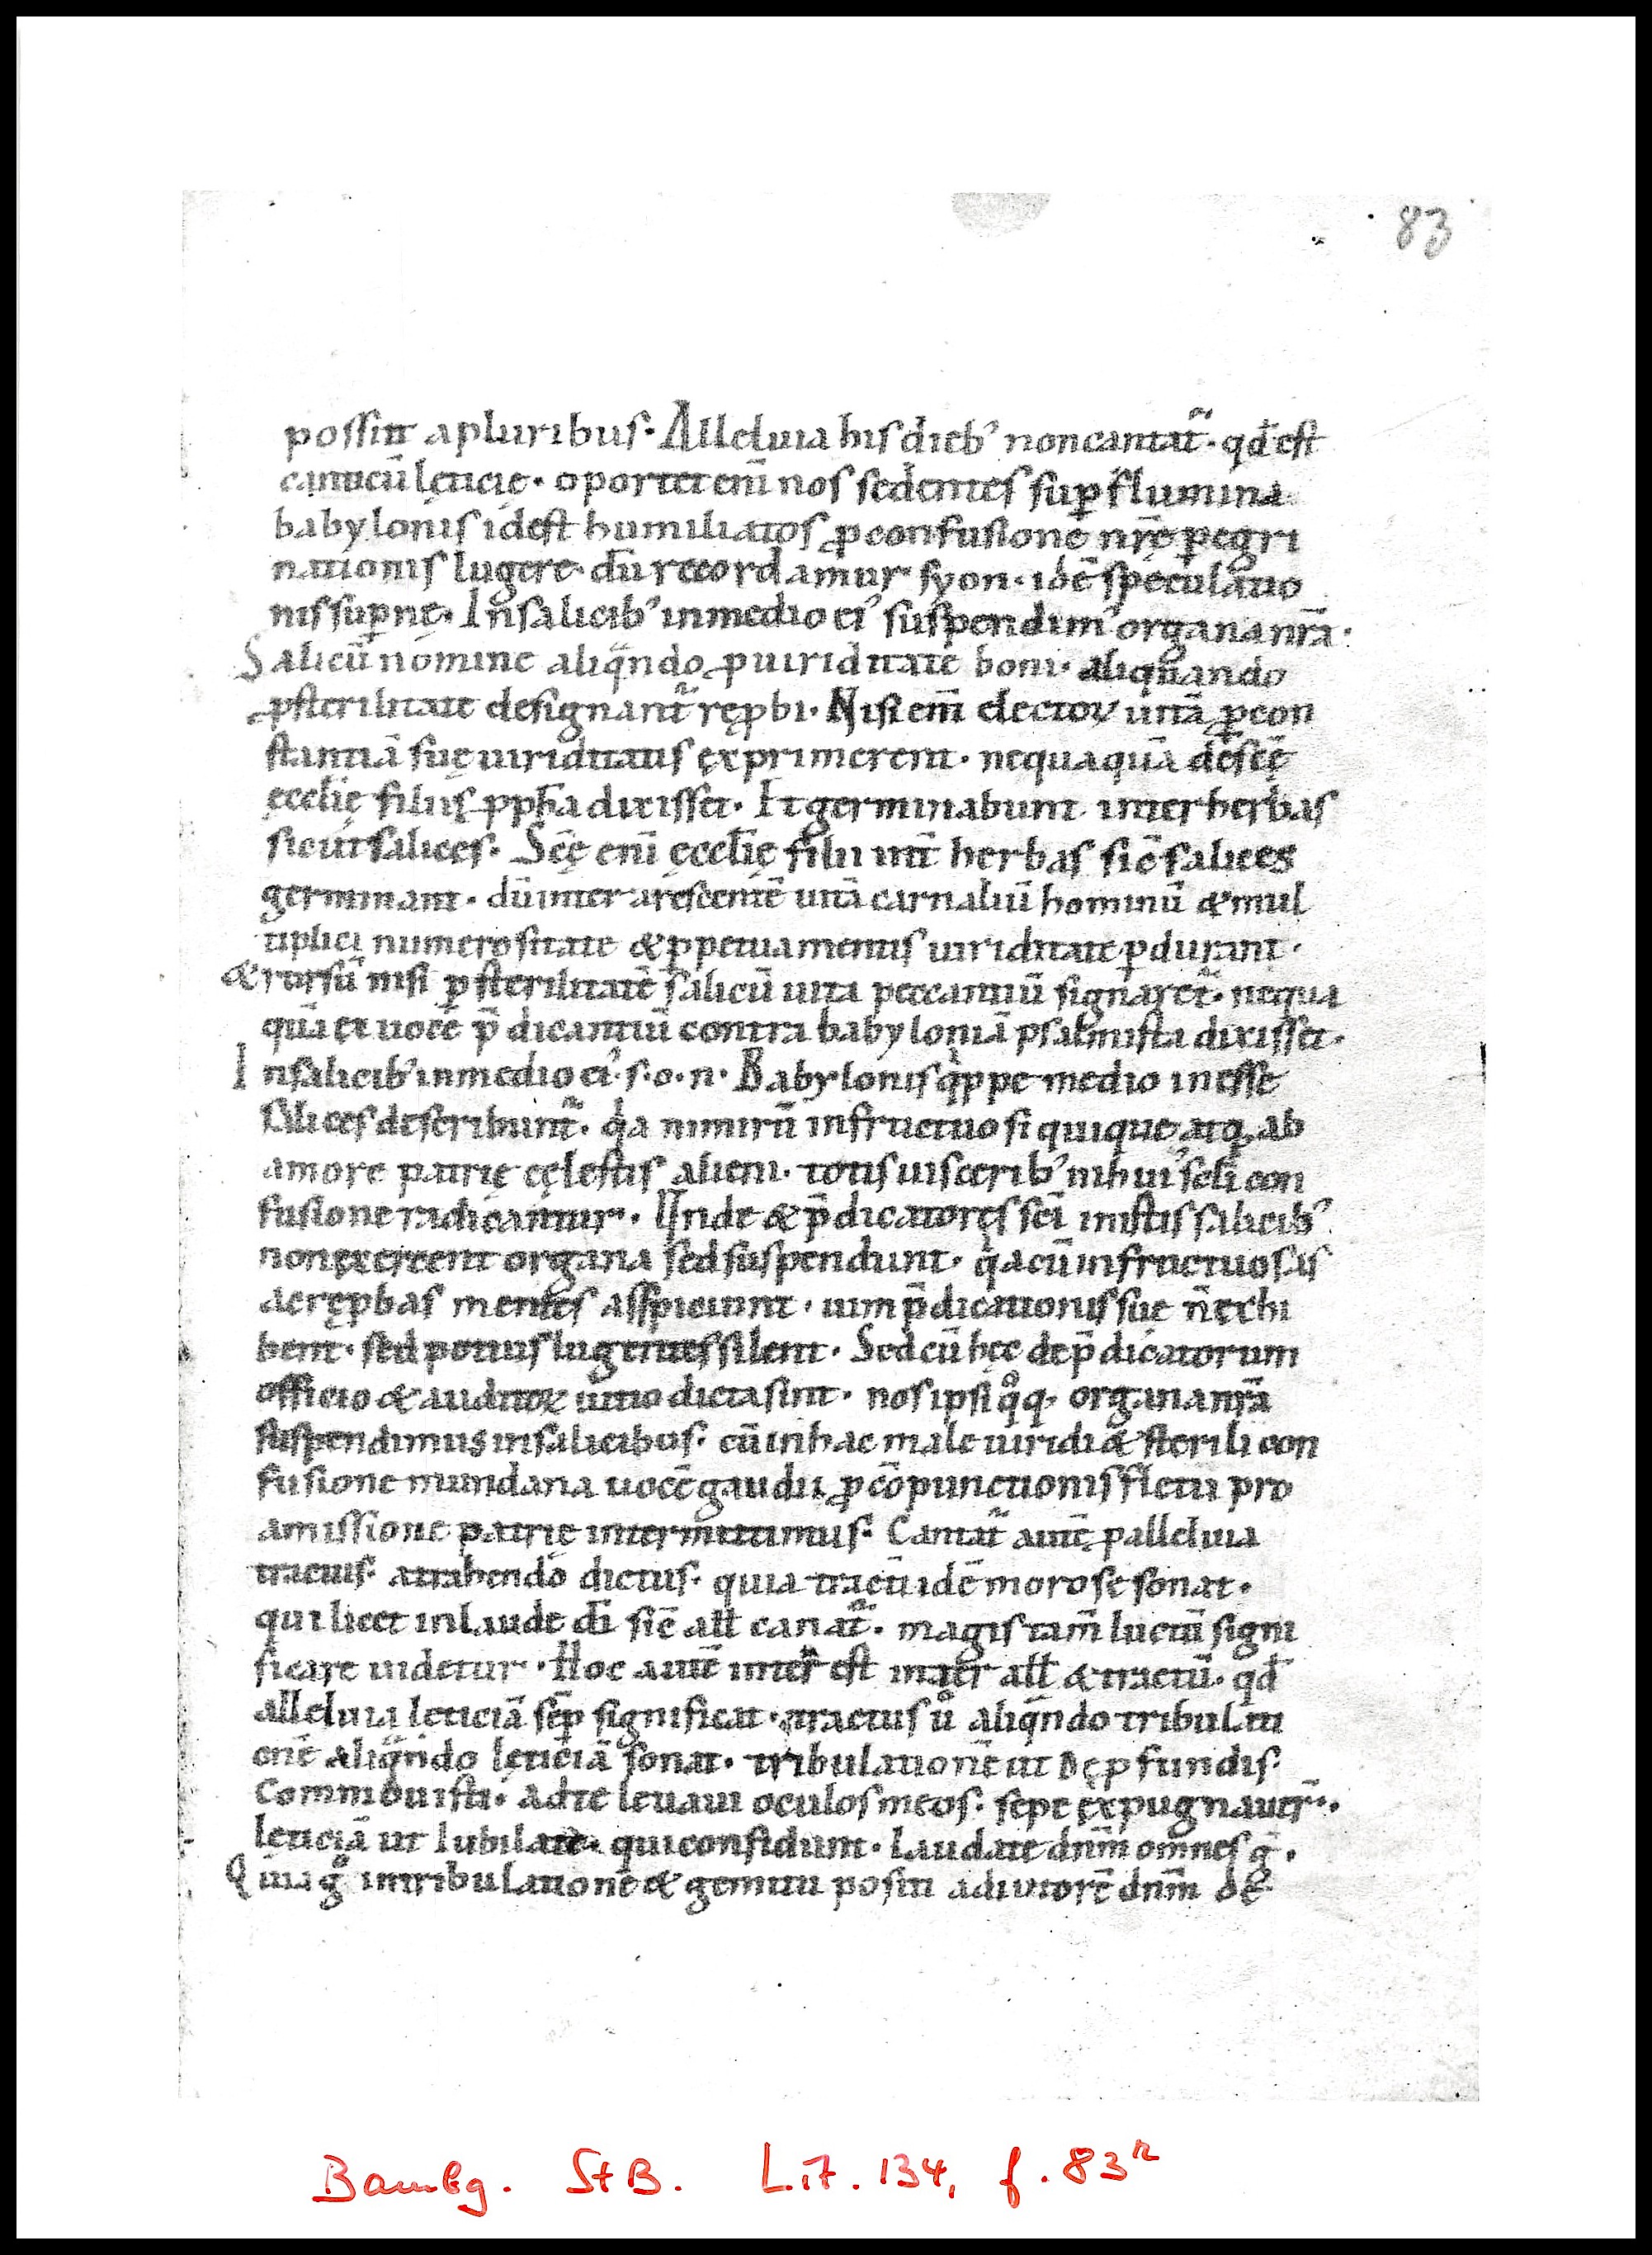 83
possint a pluribus. Alleluia his dieb' non cantat̃. qđ est
canticū lęticię. oportet enī nos sedentes sup̱ flumina
babylonis id est humiliatos ꝓ confusione nr̄ę p̱egri
nationis lugere. dū recordamur syon. id ē speculatio
nis sup̱nę. In salicib' in medio ei' suspendim' organa nr̄a.
Salicū nomine aliq̄ndo ꝓ uiriditate boni. aliquando
ꝓ sterilitate designant̃ rep̱bi. Nisi enī electoꝝ uitā ꝓ con
stantiā suę uiriditatis exprimerent. nequaquā de scę̄
ęcclīę filiis ꝓph̄a dixisset. Et germinabunt inter herbas
sicut salices. Scę̄ enī ęcclīę filii int̄ herbas sic̄ salices
germinant. dū inter arescentē uitā carnaliū hominū & mul
tiplici numerositate & p̱petua mentis uiriditate p̱durant.
& rursū nisi p̱ sterilitatē salicū uita peccantiū signaret̃. nequa
quā ex uocē p̄dicantiū contra babyloniā psalmista dixisset.
In salicib' in medio ei'. s. o. n. Babylonis q̍ppe medio inesse
salices describunt̃. q̍a nimirū infructuosi quique atq; ab
amore patrię cęlestis alieni. totis uiscerib' in hui' sc̄li con
fusione radicantur. Unde & p̄dicatores sc̄i in istis salicib'
non exercent organa sed suspendunt. q̍a cū infructuosas
ac rep̱bas mentes asspiciunt. uim p̄dicationis suę n̄ exhi
bent. sed potius lugentes silent. Sed cū hęc de p̄dicatorum
officio & auditoꝝ uitio dicta sint. nos ipsi q̊q; organa nr̄a
suspendimus in salicibus. cū in hac male uiridi & sterili con
fusione mundana uocē gaudii ꝓ cōpunctionis fletu pro
amissione patrię intermittimus. Cantat̃ autē p alleluia
tractus. a trahendo dictus. quia tractī id ē morose sonat.
qui licet in laude dī sic̄ all̄ canat̃. magis tam̄ luctū signi
ficare uidetur. Hoc autē inter est inter all̄ & tractū. qđ
alleluia lęticiā sēp significat. tractus ů aliq̄ndo tribulati
onē aliq̄ndo lęticiā sonat. tribulationē ut De ꝓfundis.
Commouisti. ad te leuaui oculos meos. sepe expugnauer̄.
lęticiā ut Iubilate. qui confidunt. Laudate dn̄m omnes g̅.
Quia g̊ in tribulatione & gemitu positi adiutorē dn̄m de
Bambg. StB. Lit. 134, f. 83r